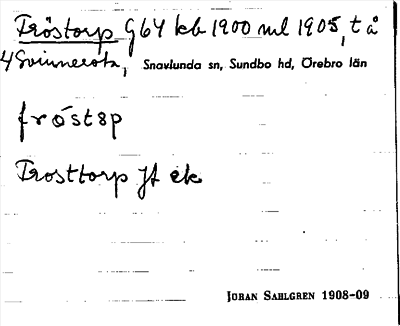 Fröstorp G64 kb 1900 ml 1905, t å
4 Svinnersta, Snavlunda sn, Sundbo hd, Örebro län
fröstøp
Frosttorp Jf ek
JÖRAN SAHLGREN 1908-09